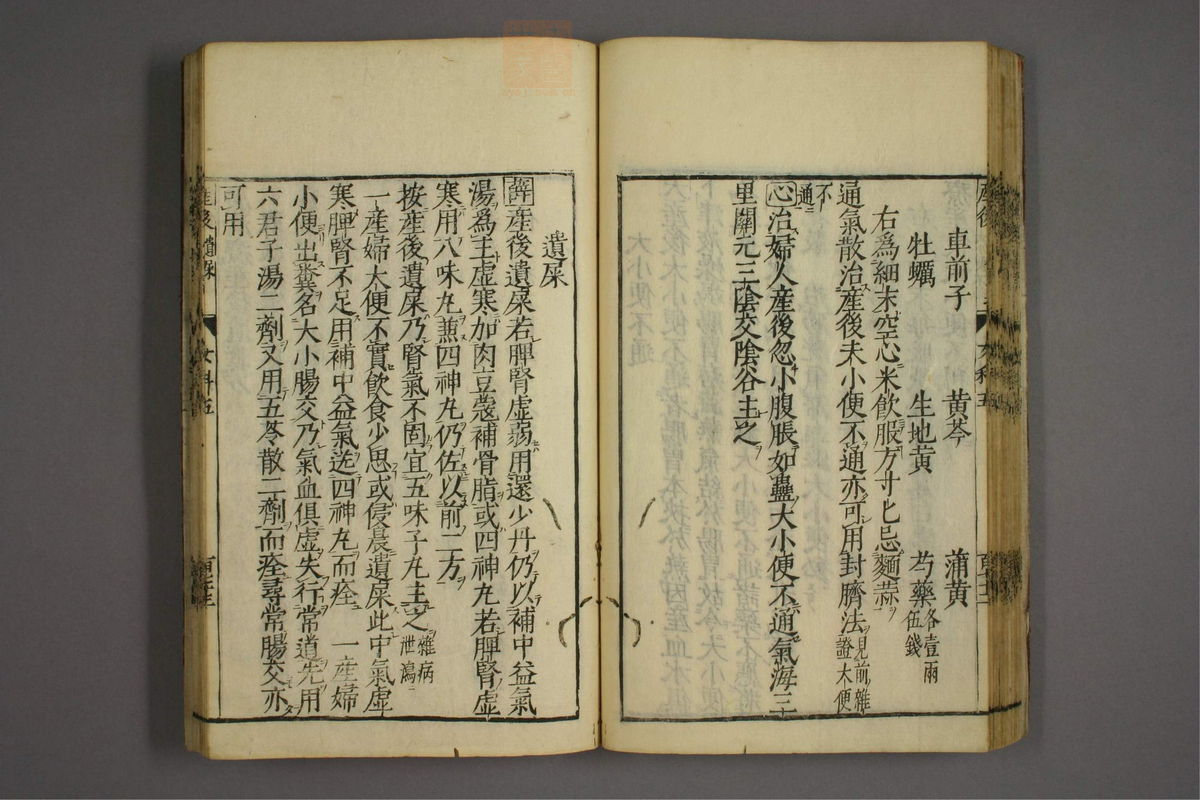 車前子 黄芩 蒲黄
牡蠣 生地黄 芍藥各壹兩伍錢
右為細末空心米飲服方寸匕忌麵蒜
通氣散治産後未小便不通亦可用封臍法見前雜證大便
不通
心治婦人産後忽小腹脹如蠱大小便不通氣海三
里關元三陰交陰谷主之
遺屎
薛産後遺屎若脾腎虚蒻用還少丹仍以補中益氣
湯為主虚寒加肉豆蔻補骨脂或四神丸若脾腎虚
寒用八味丸蒸四神丸仍佐以前二方
按産後遺屎乃腎氣不固宜五味子丸主之雜病泄瀉
一産婦大便不實飲食少思或侵晨遺屎此中氣虚
寒脾腎不足用補中益氣送四神丸而痊 一産婦
小便出糞名大小腸交乃氣血俱虚失行常道先用
六君子湯二劑又用五苓散二劑而痊尋常腸交亦
可用
産後遺屎 女科五